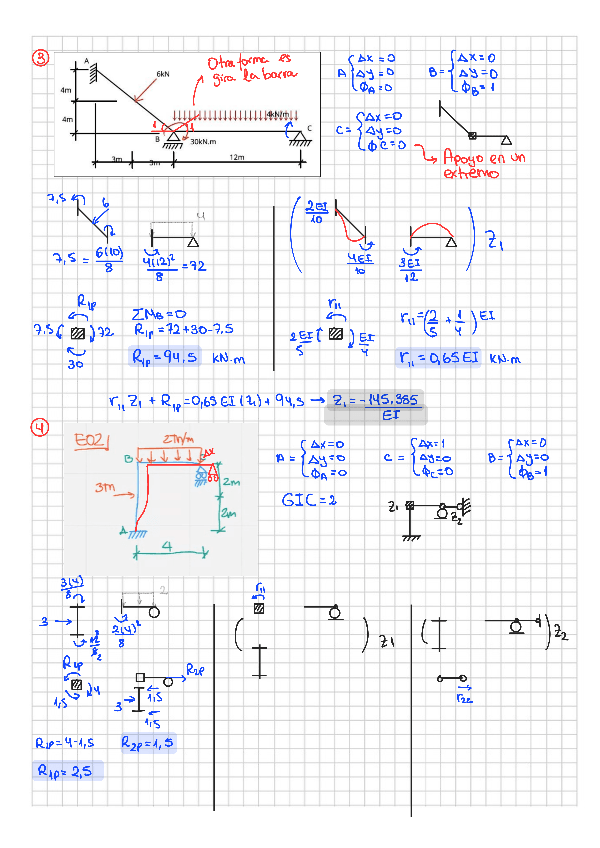 3
A
6kN
4m
4m
B
3m
3m
12m
30kN.m
4kN/m
C
Otra forma es
gira la barra
A { Δx=0
Δy=0
ϕA=0
B= { Δx=0
Δy=0
ϕB=1
C= { Δx=0
Δy=0
ϕC=0
→ Apoyo en un
extremo
7,5
6
7,5 = 6(10)/8
4
4(12)²/8 = 72
( 2EI/10
4EI/10
3EI/12 ) Z1
R1P
7,5
72
30
ΣMB=0
R1P=72+30-7.5
R1P=94,5 kN.m
r11
2EI/5
EI/4
r11=(2/5 + 1/4) EI
r11=0,65EI kN.m
r11 Z1 + R1P=0,65EI(Z1)+94,5 → Z1=-145.385/EI
4
E021
2Tn/m
Δx
B
3Tn
A
2m
2m
4
A = { Δx=0
Δy=0
ϕA=0
C = { Δx=1
Δy=0
ϕC=0
B= { Δx=0
Δy=0
ϕB=1
GIC=2
Z1
Z2
3(4)/8
3
2
2(4)²/8
R1P
1,5
4
R2P
1,5
3
1,5
R1P=4-1,5
R2P=1,5
R1P=2,5
r11
( ) Z1
( ) Z2
r22